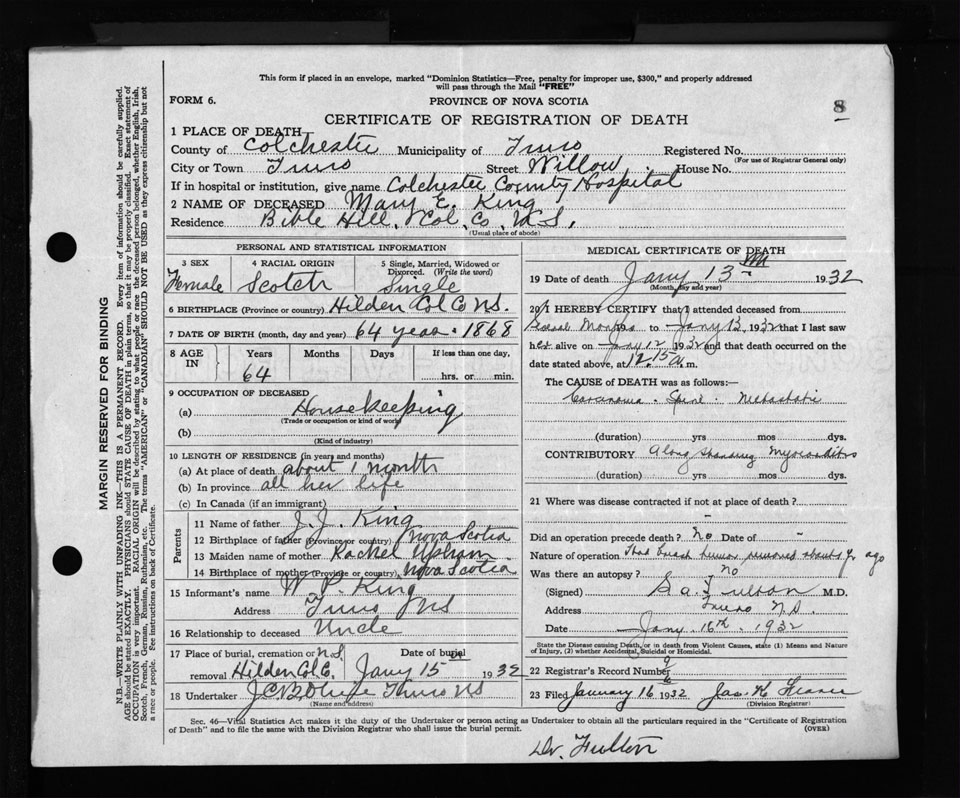 This form if placed in an envelope, marked "Dominion Statistics—Free, penalty for improper use, $300," and properly addressed
will pass through the Mail "FREE"
FORM 6.
PROVINCE OF NOVA SCOTIA
8
CERTIFICATE OF REGISTRATION OF DEATH
1 PLACE OF DEATH
County of Colchester Municipality of Truro Registered No.
(For use of Registrar General only)
City or Town Truro Street Willow House No.
If in hospital or institution, give name Colchester County Hospital
2 NAME OF DECEASED Mary E. King
Residence Bible Hill, Col. Co. N.S.
(Usual place of abode)
PERSONAL AND STATISTICAL INFORMATION
3 SEX 4 RACIAL ORIGIN 5 Single, Married, Widowed or
Divorced. (Write the word)
Female Scotch Single
6 BIRTHPLACE (Province or country) Hilden Col Co NS.
7 DATE OF BIRTH (month, day and year) 64 years. 1868
8 AGE IN Years Months Days If less than one day,
64 hrs. or min.
9 OCCUPATION OF DECEASED
(a) Housekeeping
(Trade or occupation or kind of work)
(b)
(Kind of industry)
10 LENGTH OF RESIDENCE (in years and months)
(a) At place of death about 1 month
(b) In province all her life
(c) In Canada (if an immigrant)
Parents
11 Name of father J. J. King
12 Birthplace of father (Province or country) Nova Scotia
13 Maiden name of mother Rachel Upham
14 Birthplace of mother (Province or country) Nova Scotia
15 Informant's name W. P. King
Address Truro NS
16 Relationship to deceased Uncle
17 Place of burial, cremation or N.S. Date of burial
removal Hilden Col. C. Jany 15 1932
18 Undertaker Truro NS
(Name and address)
MEDICAL CERTIFICATE OF DEATH
19 Date of death Jany 13 1932
(Month, day and year)
20 I HEREBY CERTIFY that I attended deceased from
Several Months 19 to Jany 13, 1932 that I last saw
her alive on Jany 12 1932 and that death occurred on the
date stated above, at 12.15 a. m.
The CAUSE of DEATH was as follows:
Carcinoma - Spine - Metastatic
(duration) yrs mos dys.
CONTRIBUTORY A long standing Myocarditis
(duration) yrs mos dys.
21 Where was disease contracted if not at place of death?
Did an operation precede death? No Date of -
Nature of operation Had breast tumor removed about ago
Was there an autopsy? no
(Signed) S. a. Fulton M.D.
Address Truro N.S.
Date Jany 16th. 1932
State the Disease causing Death, or in death from Violent Causes, state (1) Means and
Nature of Injury, (2) whether Accidental, Suicidal or Homicidal.
22 Registrar's Record Number 9
23 Filed January 16 1932 Jas.
(Division Registrar)
Sec. 46—Vital Statistics Act makes it the duty of the Undertaker or person acting as Undertaker to obtain all the particulars required in the "Certificate of Registration
of Death" and to file the same with the Division Registrar who shall issue the burial permit.
(OVER)
Dr. Fulton
MARGIN RESERVED FOR BINDING
N.B.—WRITE PLAINLY WITH UNFADING INK—THIS IS A PERMANENT RECORD. Every item of information should be carefully supplied.
AGE should be stated EXACTLY. PHYSICIANS should STATE CAUSE OF DEATH in plain terms, so that it may be properly classified. Exact statement of
OCCUPATION is very important. RACIAL ORIGIN will be described by stating to what people or race the deceased person belonged, whether English, Irish,
Scotch, French, German, Russian, Ruthenian, etc. The terms "AMERICAN" or "CANADIAN" SHOULD NOT BE USED as they express citizenship but not
a race or people. See instructions on back of Certificate.